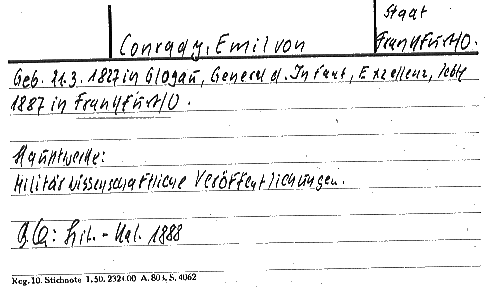 Staat
Conrady, Emil von
Frankfurt/O.
Geb. 21.3.1827 in Glogau, General d. Infant, Exzellenz, lebte
1887 in Frankfurt/O.
Hauptwerke:
Militärwissenschaftliche Veröffentlichungen.
Lit.-Kal. 1888
Keg. 10. Stichnote 1.50. 2324.00 A. 803, S. 4062